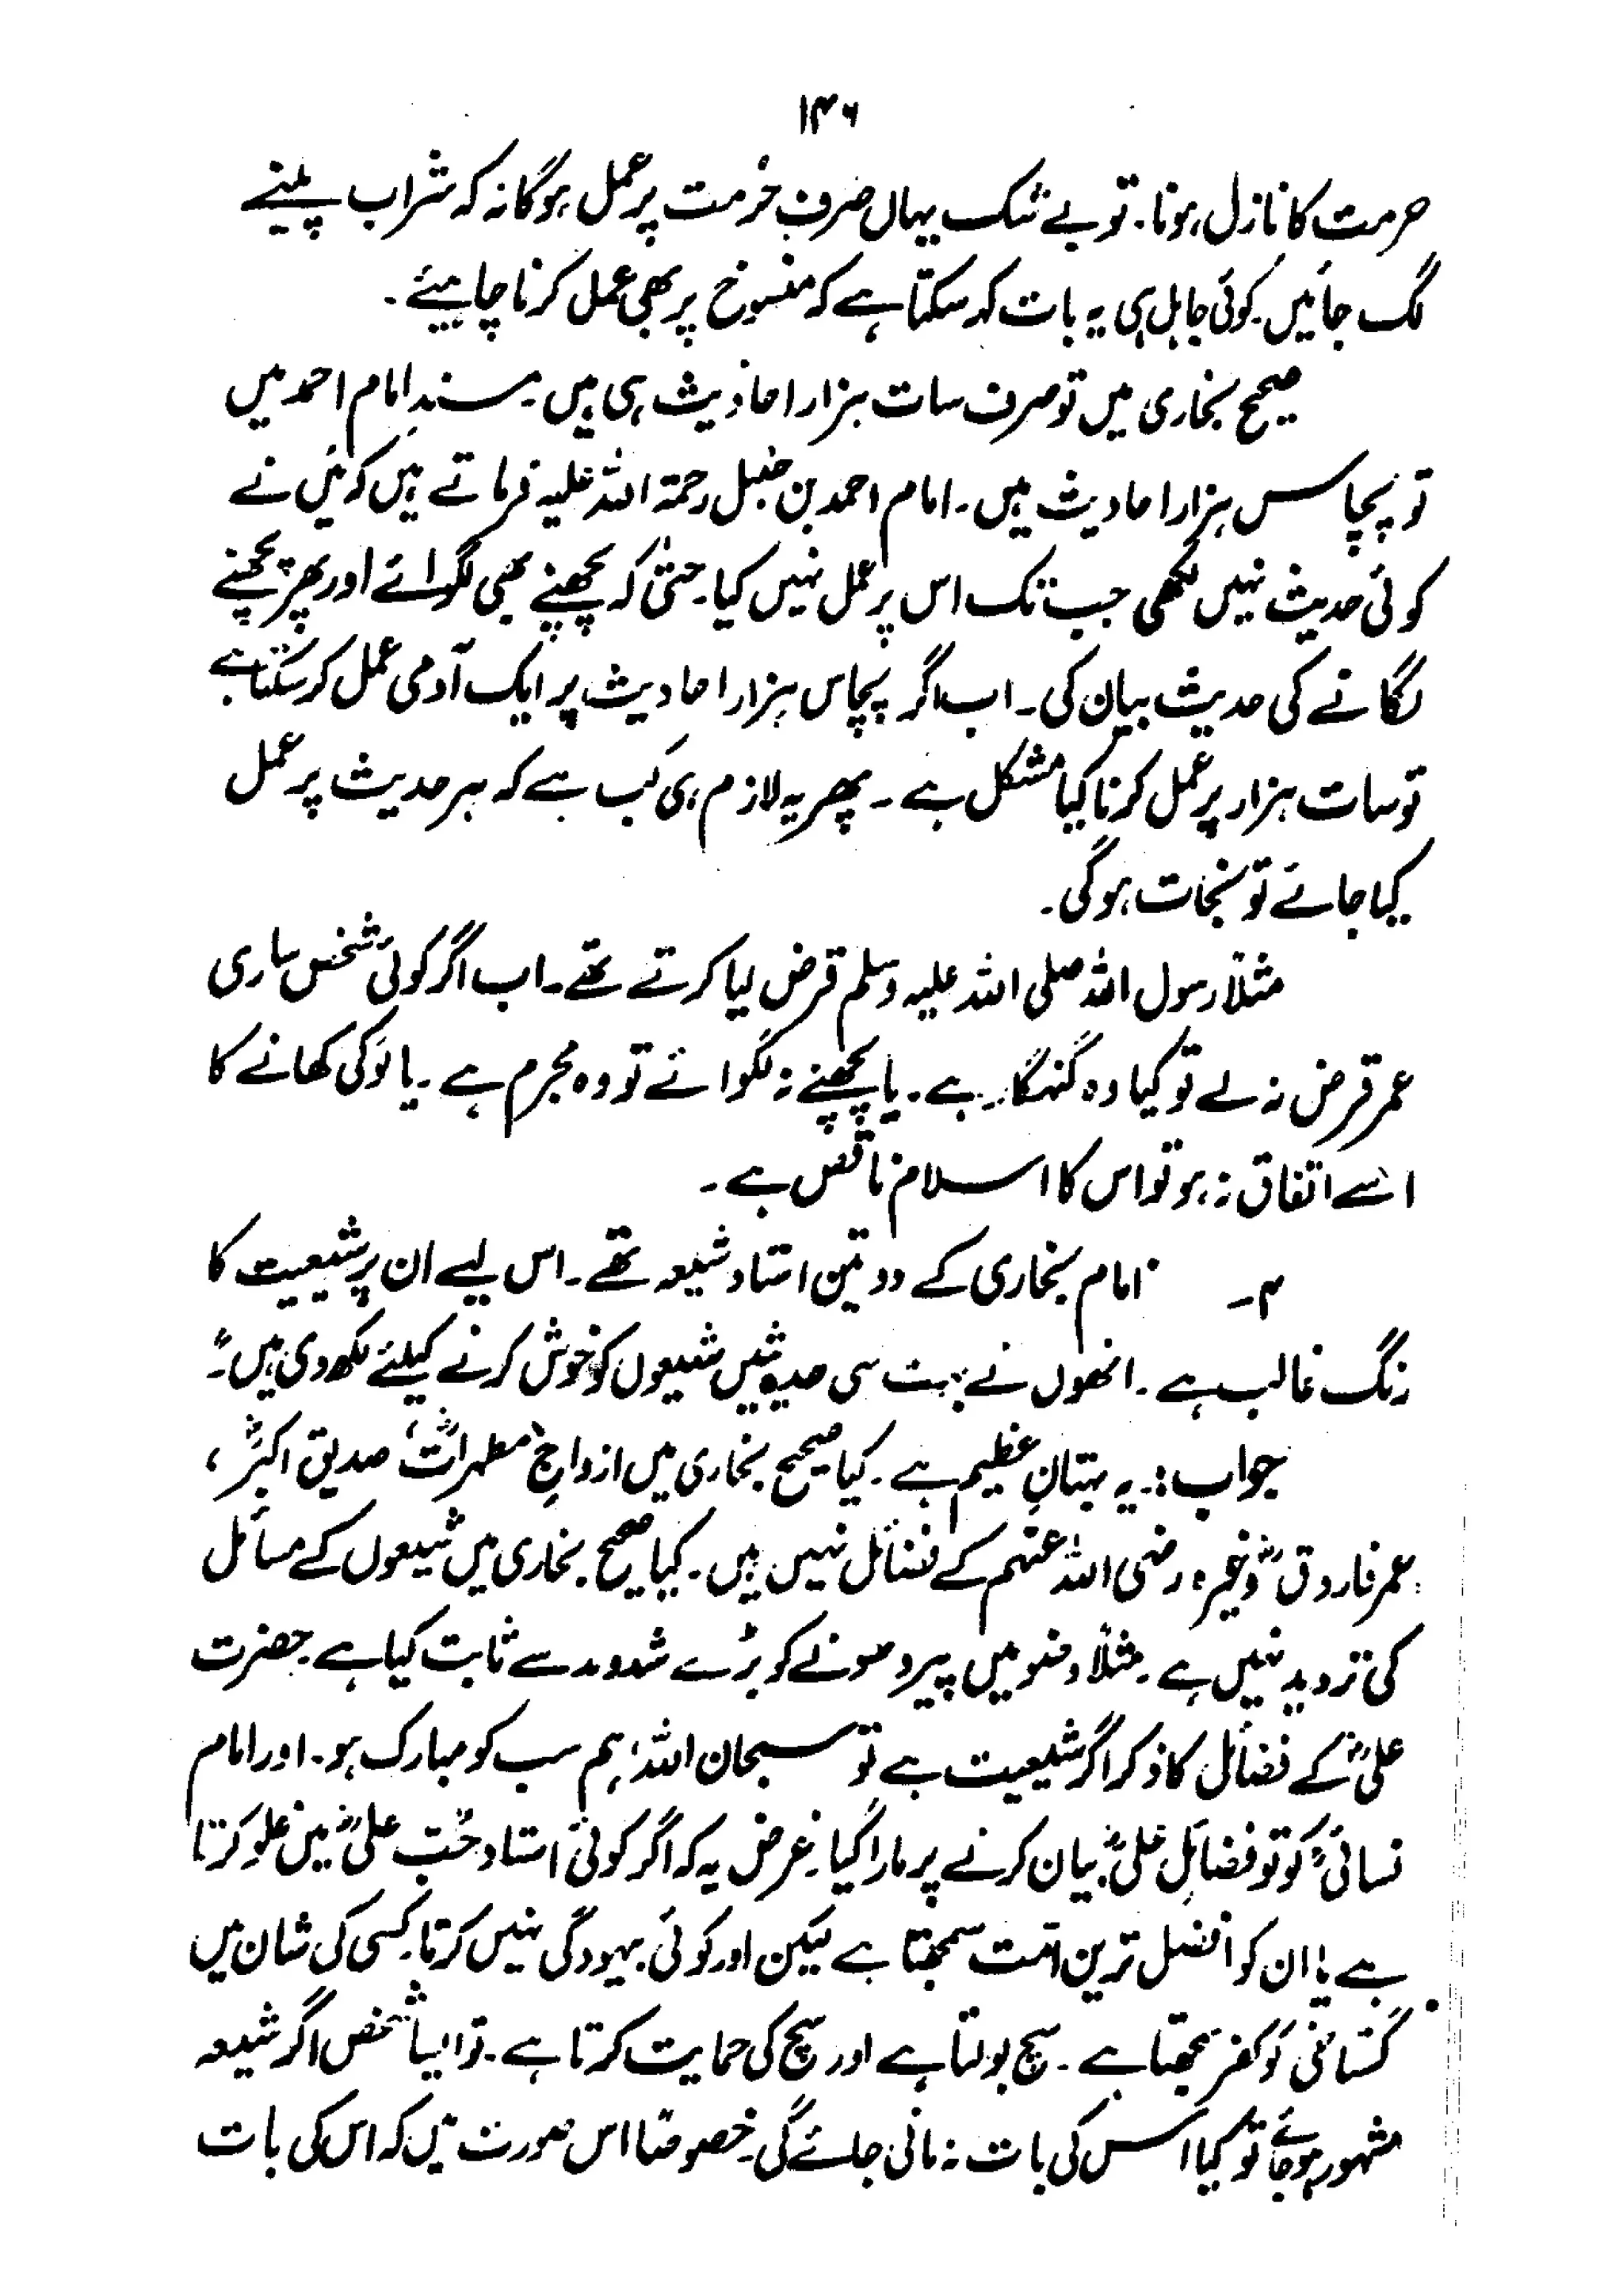 ۱۴۶
حرمت کا نازل ہونا۔ تو بے شک یہاں صرف حرمت پر عمل ہوگا نہ کہ شراب پینے
لگ جائیں۔ کوئی جاہل ہی یہ بات کہہ سکتا ہے کہ منسوخ پر بھی عمل کرنا چاہیئے۔
صحیح بخاری میں تو صرف سات ہزار احادیث ہی ہیں۔ مسندِ امام احمد میں
تو پچاس ہزار احادیث ہیں۔ امام احمد بن حنبل رحمۃ اللہ علیہ فرماتے ہیں کہ میں نے
کوئی حدیث نہیں لکھی جب تک اس پر عمل نہیں کیا۔ حتیٰ کہ پچھنے بھی لگوائے اور پھر پچھنے
لگانے کی حدیث بیان کی۔ اب اگر پچاس ہزار احادیث پر ایک آدمی عمل کر سکتا ہے
تو سات ہزار پر عمل کرنا کیا مشکل ہے۔ پھر یہ لازم ہی کب ہے کہ ہر حدیث پر عمل
کیا جائے تو نجات ہوگی۔
مثلاً رسول اللہ صلی اللہ علیہ وسلم قرض لیا کرتے تھے۔ اب اگر کوئی شخص ساری
عمر قرض نہ لے تو کیا وہ گنہگار ہے۔ یا پچھنے نہ لگوائے تو وہ مجرم ہے۔ یا لوکی کھانے کا
اسے اتفاق نہ ہو تو اس کا اسلام ناقص ہے۔
۴۔ امام بخاری کے دو تین استاد شیعہ تھے۔ اس لیے ان پر شیعیت کا
رنگ غالب ہے۔ انھوں نے بہت سی حدیثیں شیعوں کو خوش کرنے کیلئے لکھ دی ہیں۔"
جواب :۔ یہ بہتانِ عظیم ہے۔ کیا صحیح بخاری میں ازواجِ مطہراتؓ، صدیق اکبرؓ،
عمر فاروقؓ وغیرہ رضی اللہ عنہم کے فضائل نہیں ہیں۔ کیا صحیح بخاری میں شیعوں کے مسائل
کی تردید نہیں ہے۔ مثلاً وضو میں پیر دھونے کو بڑے شد و مد سے ثابت کیا ہے۔ حضرت
علیؓ کے فضائل کا ذکر اگر شیعیت ہے تو سبحان اللہ، ہم سب کو مبارک ہو۔ اور امام
نسائیؒ کو تو فضائلِ علیؓ بیان کرنے پر مارا گیا۔ غرض یہ کہ اگر کوئی استاد حُبِّ علیؓ میں غلو کرتا
ہے یا ان کو افضل ترین امت سمجھتا ہے لیکن اور کوئی بیہودگی نہیں کرتا۔ کسی کی شان میں
گستاخی کو کفر سمجھتا ہے۔ سچ بولتا ہے اور سچ کی حمایت کرتا ہے۔ تو ایسا شخص اگر شیعہ
مشہور ہو جائے تو کیا اس کی بات نہ مانی جائے گی۔ خصوصاً اس صورت میں کہ اس کی بات